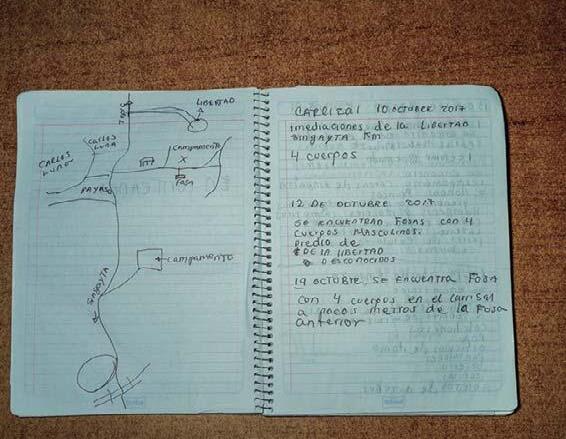 LIBERTAD
CARLOS
LUNA
CARLOS
Campamento
X
FOSA
PAYASO
campamento
CARRIZAL 10 OCTUBRE 2017
inmediaciones de la LIBERTAD
KM
4 cuerpos
12 DE OCTUBRE 2017
SE ENCUENTRAN FOSAS CON 4
CUERPOS MASCULINOS.
PREDIO DE
DE LA LIBERTAD
DESCONOCIDOS
19 OCTUBRE SE ENCUENTRA FOSA
CON 4 cuerpos en el carrisal
a pocos metros de la FOSA
anterior